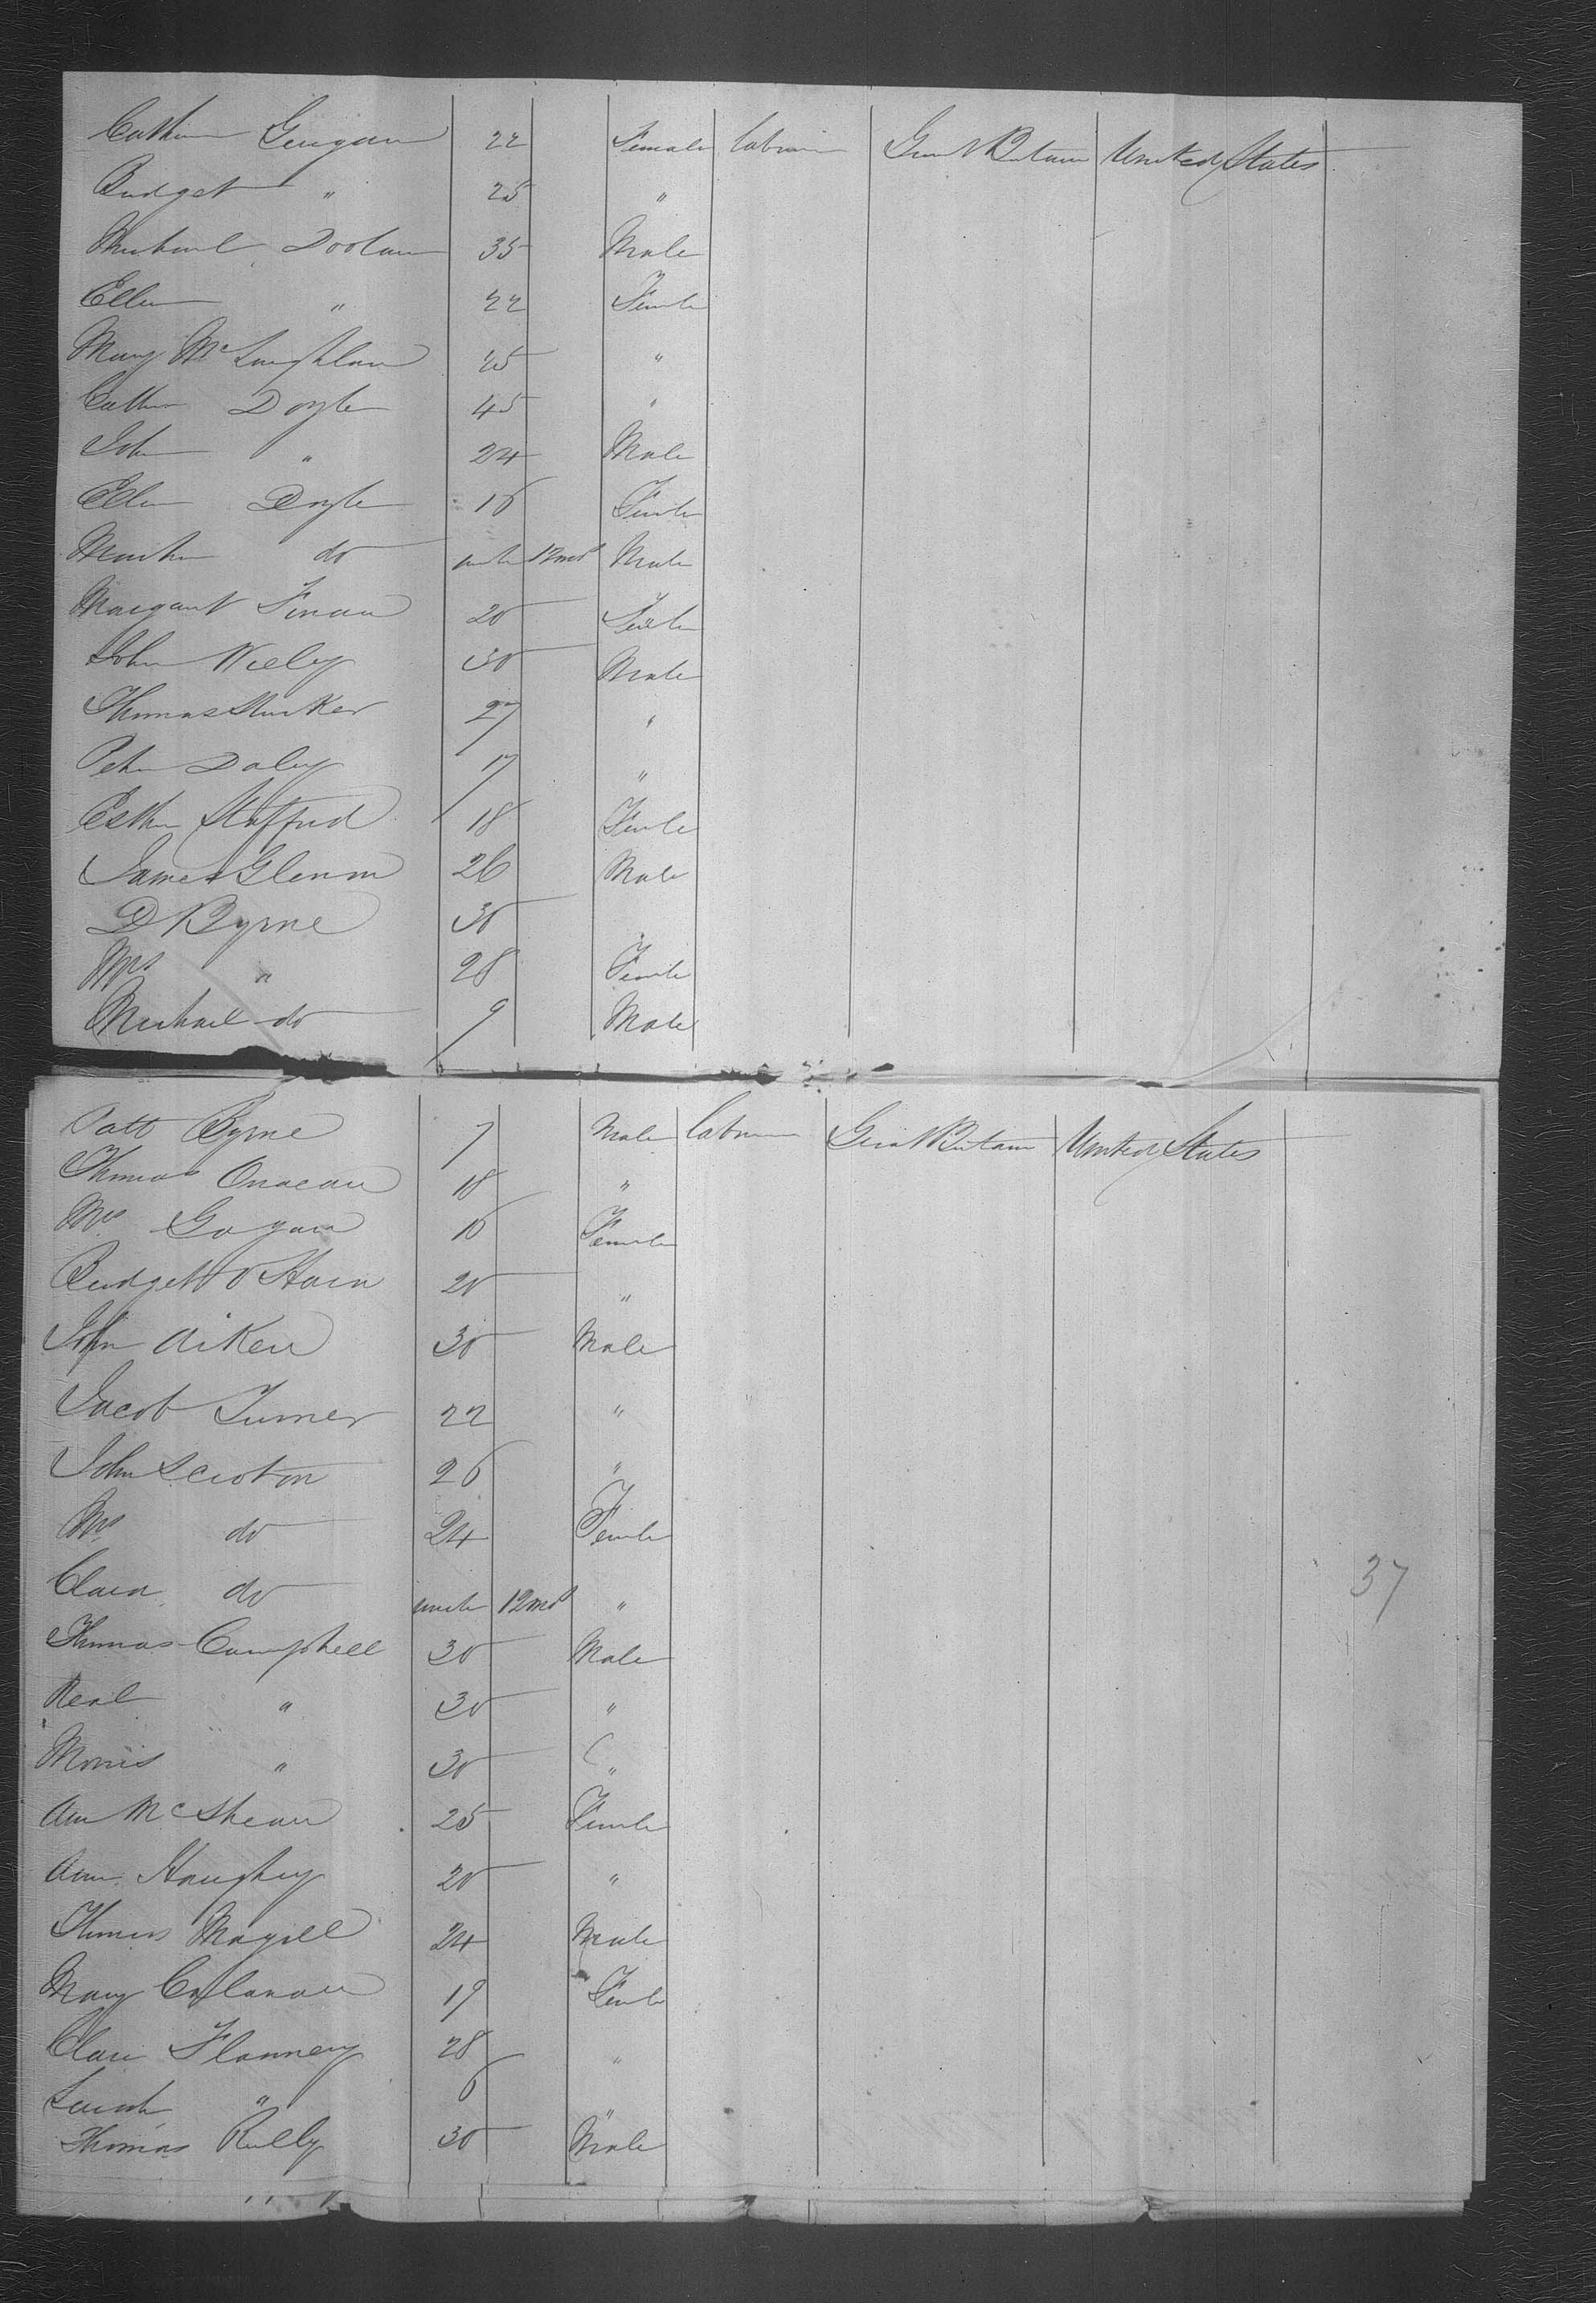 Cathn Geugan 22 Female labour Great Britain United States
Bridget " 25 "
Michael Doolan 35 Male
Ellen " 22 Female
Mary McLaughlan 25 "
Cathn Doyle 45 "
John " 24 Male
Ellen Doyle 16 Female
do under 12 mos Male
Margaret Finan 20 Female
John Kiely 30 Male
Thomas 27 "
Peter Daley 17 "
Esther Stafford 18 Female
James Glenn 26 Male
D Byrne 30
Mrs " 28 Female
Michael do 9 Male
Patt Byrne 7 Male labour Great Britain United States
Thomas 18 "
Mrs Gogan 16 Female
Bridget O Hara 20 "
John Aiken 30 Male
Jacob Turner 22 "
John Scroton 26 "
Mrs do 24 Female
Clara do under 12 mos "
37
Thomas Campbell 30 Male
Neal " 30 "
Morris " 30 "
Ann McShean 25 Female
Ann Haughey 20 "
Thomas Magill 24 Male
Mary Collanan 19 Female
Clari Flannery 28 "
Sarah " 6 "
Thomas Reilly 30 Male